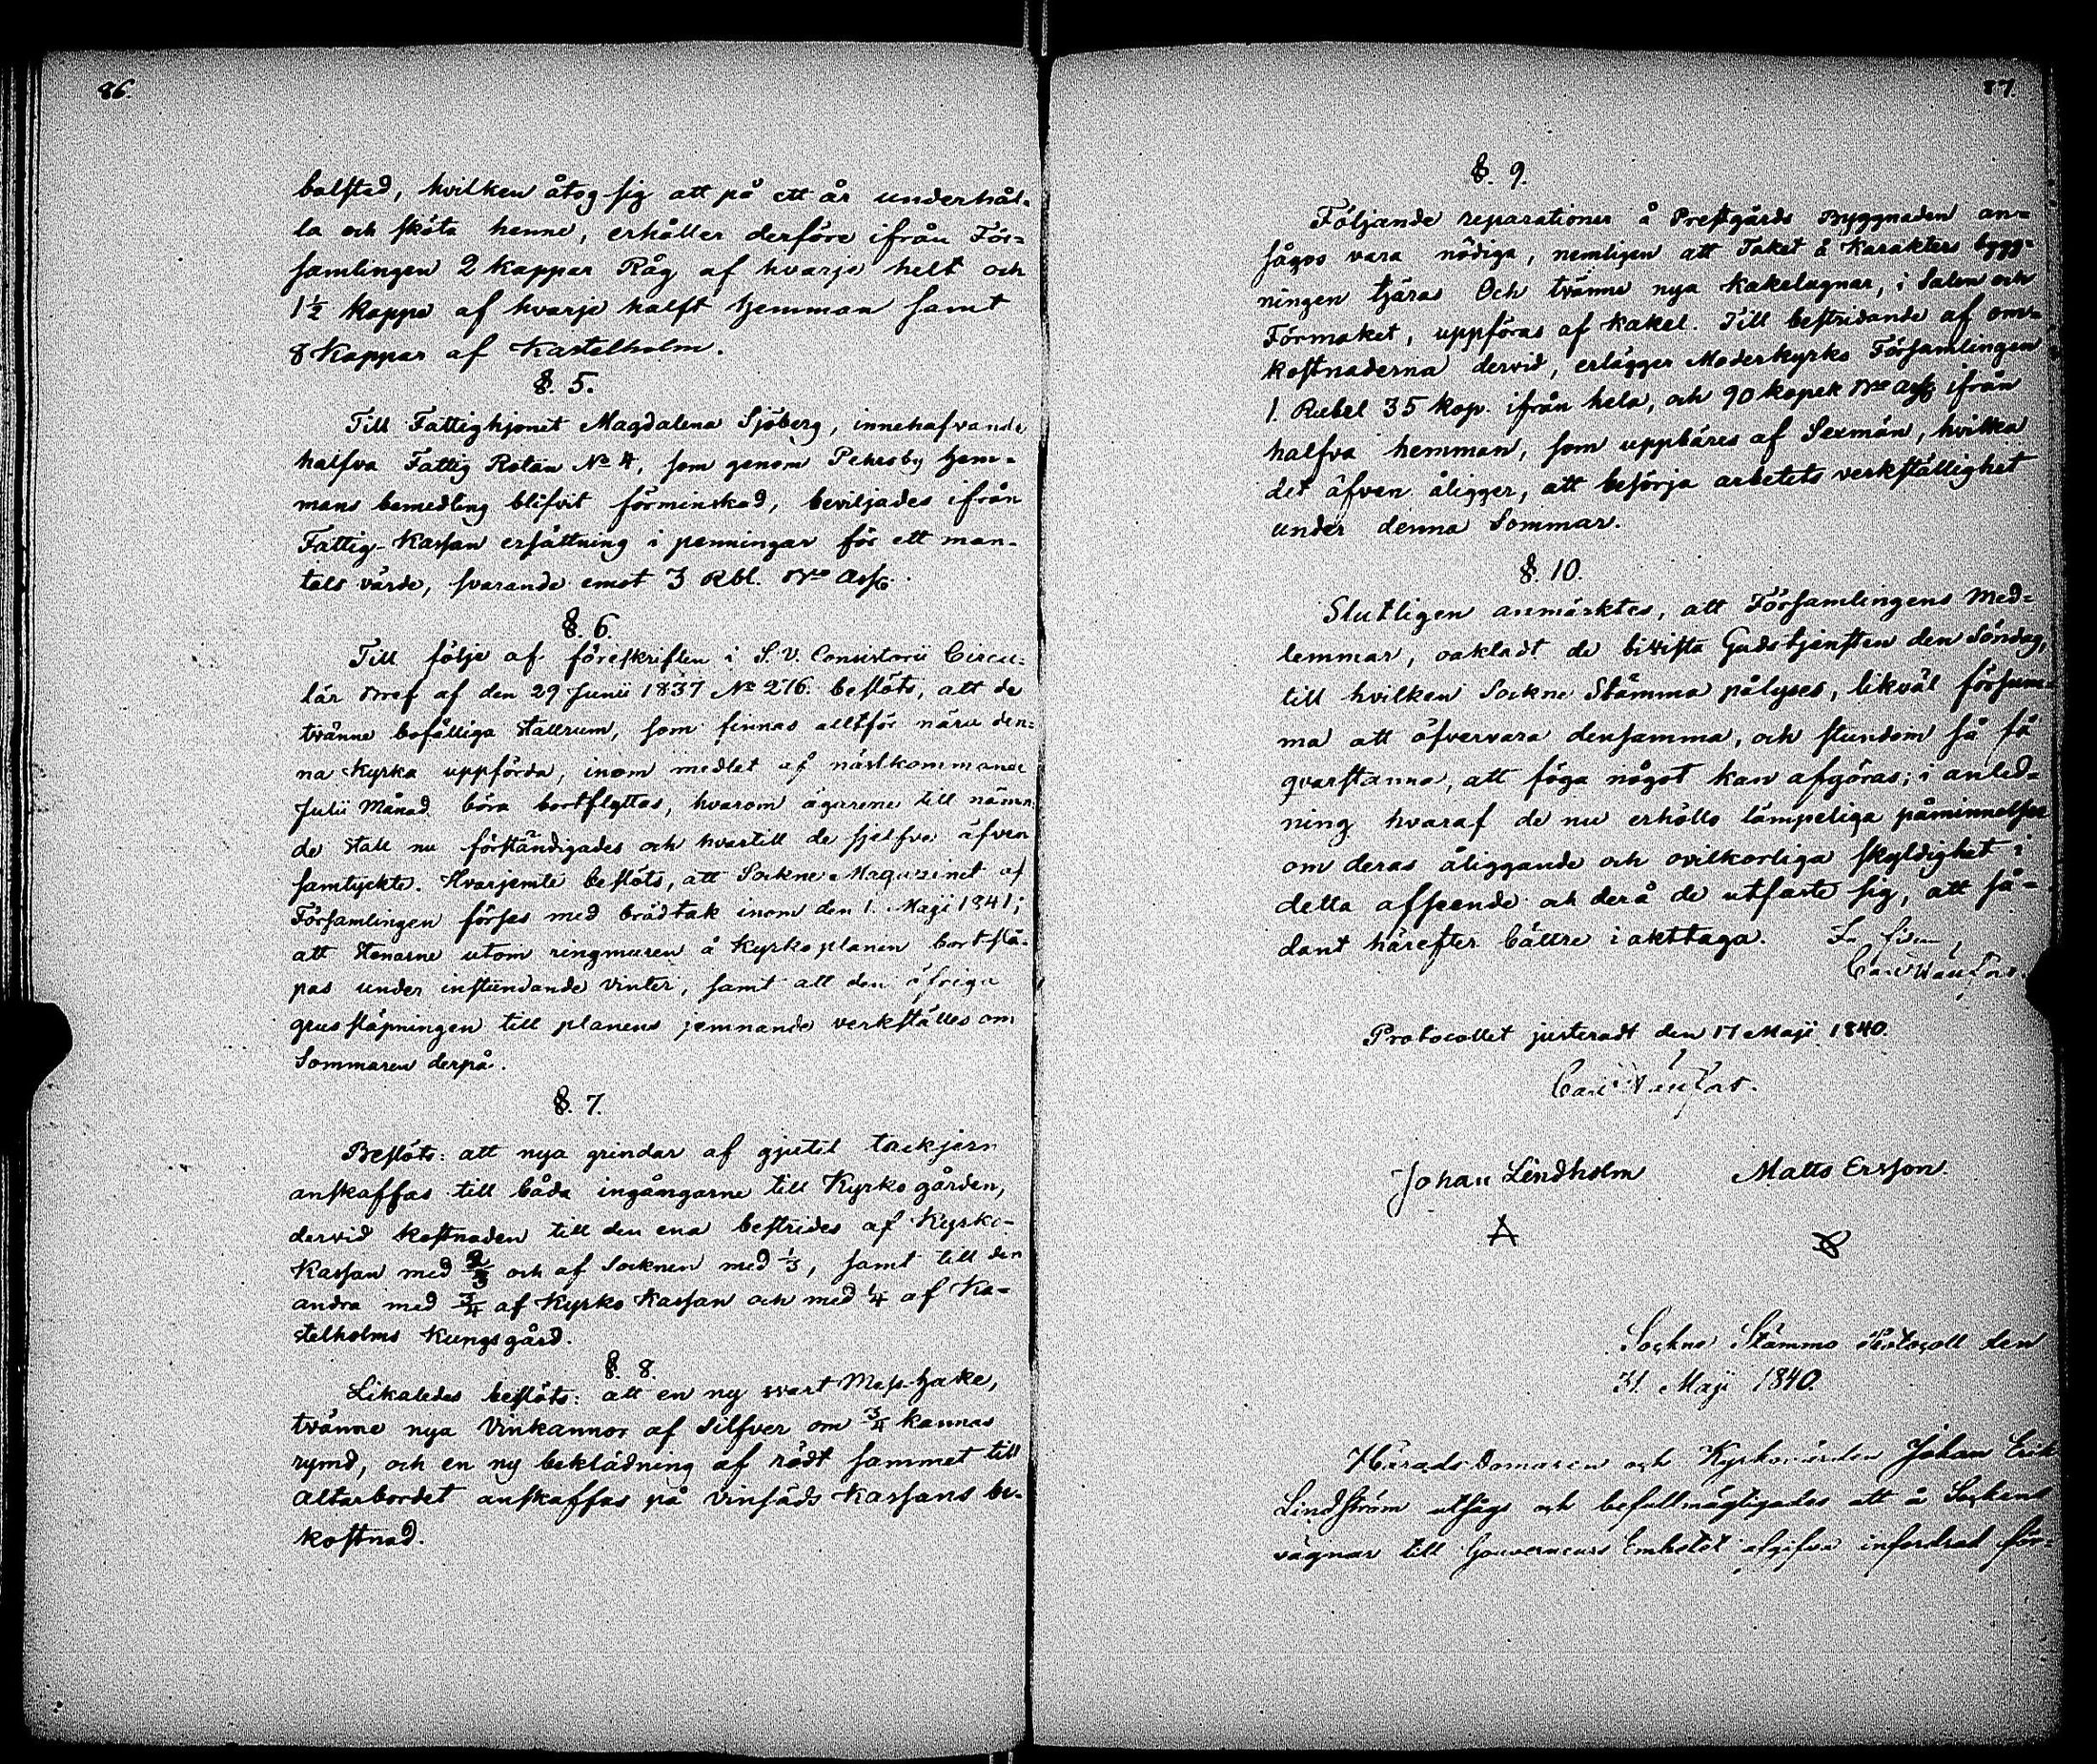 86.
bolstad, hvilken åtog sig att på ett år underhål-
la och sköta henne, erhåller derföre ifrån För-
samlingen 2 kappar Råg af hvarje helt och
1½ kappe af hvarje halft hemman samt
8 Kappar af Kastelholm.
§. 5.
Till Fattighjonet Magdalena Sjöberg, innehafvande
halfva Fattig Rotan No 4, som genom Pehrsby hem-
mans bemedling blifvit förminskad, beviljades ifrån
Fattig-Kassan ersättning i penningar för ett man-
tals värde, svarande emot 3 Rbl. Bco Ass.
§. 6.
Till följe af föreskriften i S. V. Consistorii Circu-
lär Bref af den 29 Junii 1837 No 276. beslöts, att de
tvänne bofälliga stallrum, som finnas alltför nära den-
na Kyrka uppförda, inom medlet af nästkommande
Julii Månad böra bortflyttas, hvarom ägarene till nämn-
de stall nu förständigades och hvartill de sjelfva äfven
samtyckte. Hvarjemte beslöts, att Sockne Magazinet af
Församlingen förses med brädtak inom den 1. Maji 1841;
att stenarne utom ringmuren å Kyrkoplanen bortslä-
pas under instundande vinter, samt att den öfriga
grussläpningen till planens jemnande verkställes om
Sommaren derpå.
§. 7.
Beslöts: att nya grindar af gjutet tackjern
anskaffas till båda ingångarne till Kyrkogården,
dervid kostnaden till den ena bestrides af Kyrko-
Kassan med 2/3 och af Socknen med 1/3, samt till den
andra med 3/4 af Kyrko Kassan och med 1/4 af Ka-
stelholms Kungsgård.
§. 8.
Likaledes beslöts: att en ny svart Mess-hake,
tvänne nya Vinkannor af Silfver om 3/4 kannas
rymd, och en ny beklädning af rödt sammet till
altarbordet anskaffas på Vinsäds Kassans be-
kostnad.
87.
§. 9.
Följande reparationer å Prestgårds Byggnaden an-
sågos vara nödiga, nemligen att Taket å Karakters bygg-
ningen tjäras Och tvänne nya kakelugnar, i Salen och
Förmaket, uppföras af kakel. Till bestridande af om-
kostnaderna dervid, erlägger Moderkyrko Församlingen
1. Rubel 35 kop. ifrån hela, och 90 kopek Bco Ass ifrån
halfva hemman, som uppbäres af Sexmän, hvilka
det äfven åligger, att besörja arbetets verkställighet
under denna Sommar.
§. 10.
Slutligen anmärktes, att Församlingens Med-
lemmar, oaktadt de bivista Gudstjensten den Söndag,
till hvilken Sockne Stämma pålyses, likväl försum-
ma att öfvervara densamma, och stundom så få
qvarstanna, att föga något kan afgöras; i anled-
ning hvaraf de nu erhöllo lämpeliga påminnelser
om deras åliggande och ovilkorliga skyldighet i
detta afseende och derå de utfäste sig, att så-
dant härefter bättre iakttaga. In fidem,
Carl
Protocollet justeradt den 17 Maji 1840.
Carl
Johan Lindholm Matts Ersson.
Sockne Stämmo Protocoll den
31. Maji 1840.
Härads Domaren och Kyrkovärden Johan Erik
Lindström utsågs och befullmägtigades att å Sockens
vägnar till Gouverneurs Embetet afgifva infordrad för-